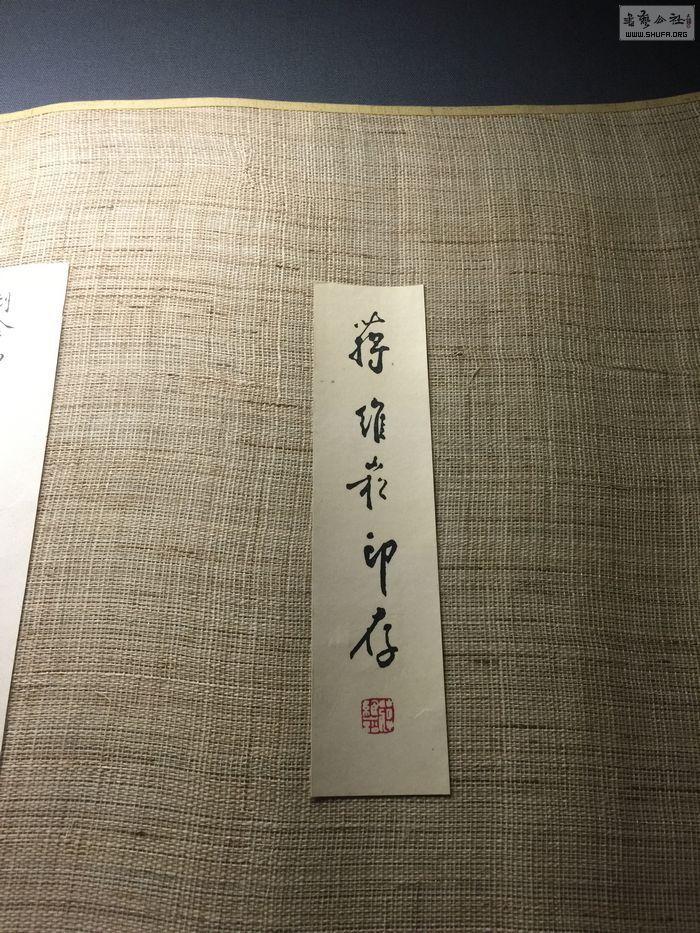 蒋维崧印存
书艺公社
WWW.SHUFA.ORG